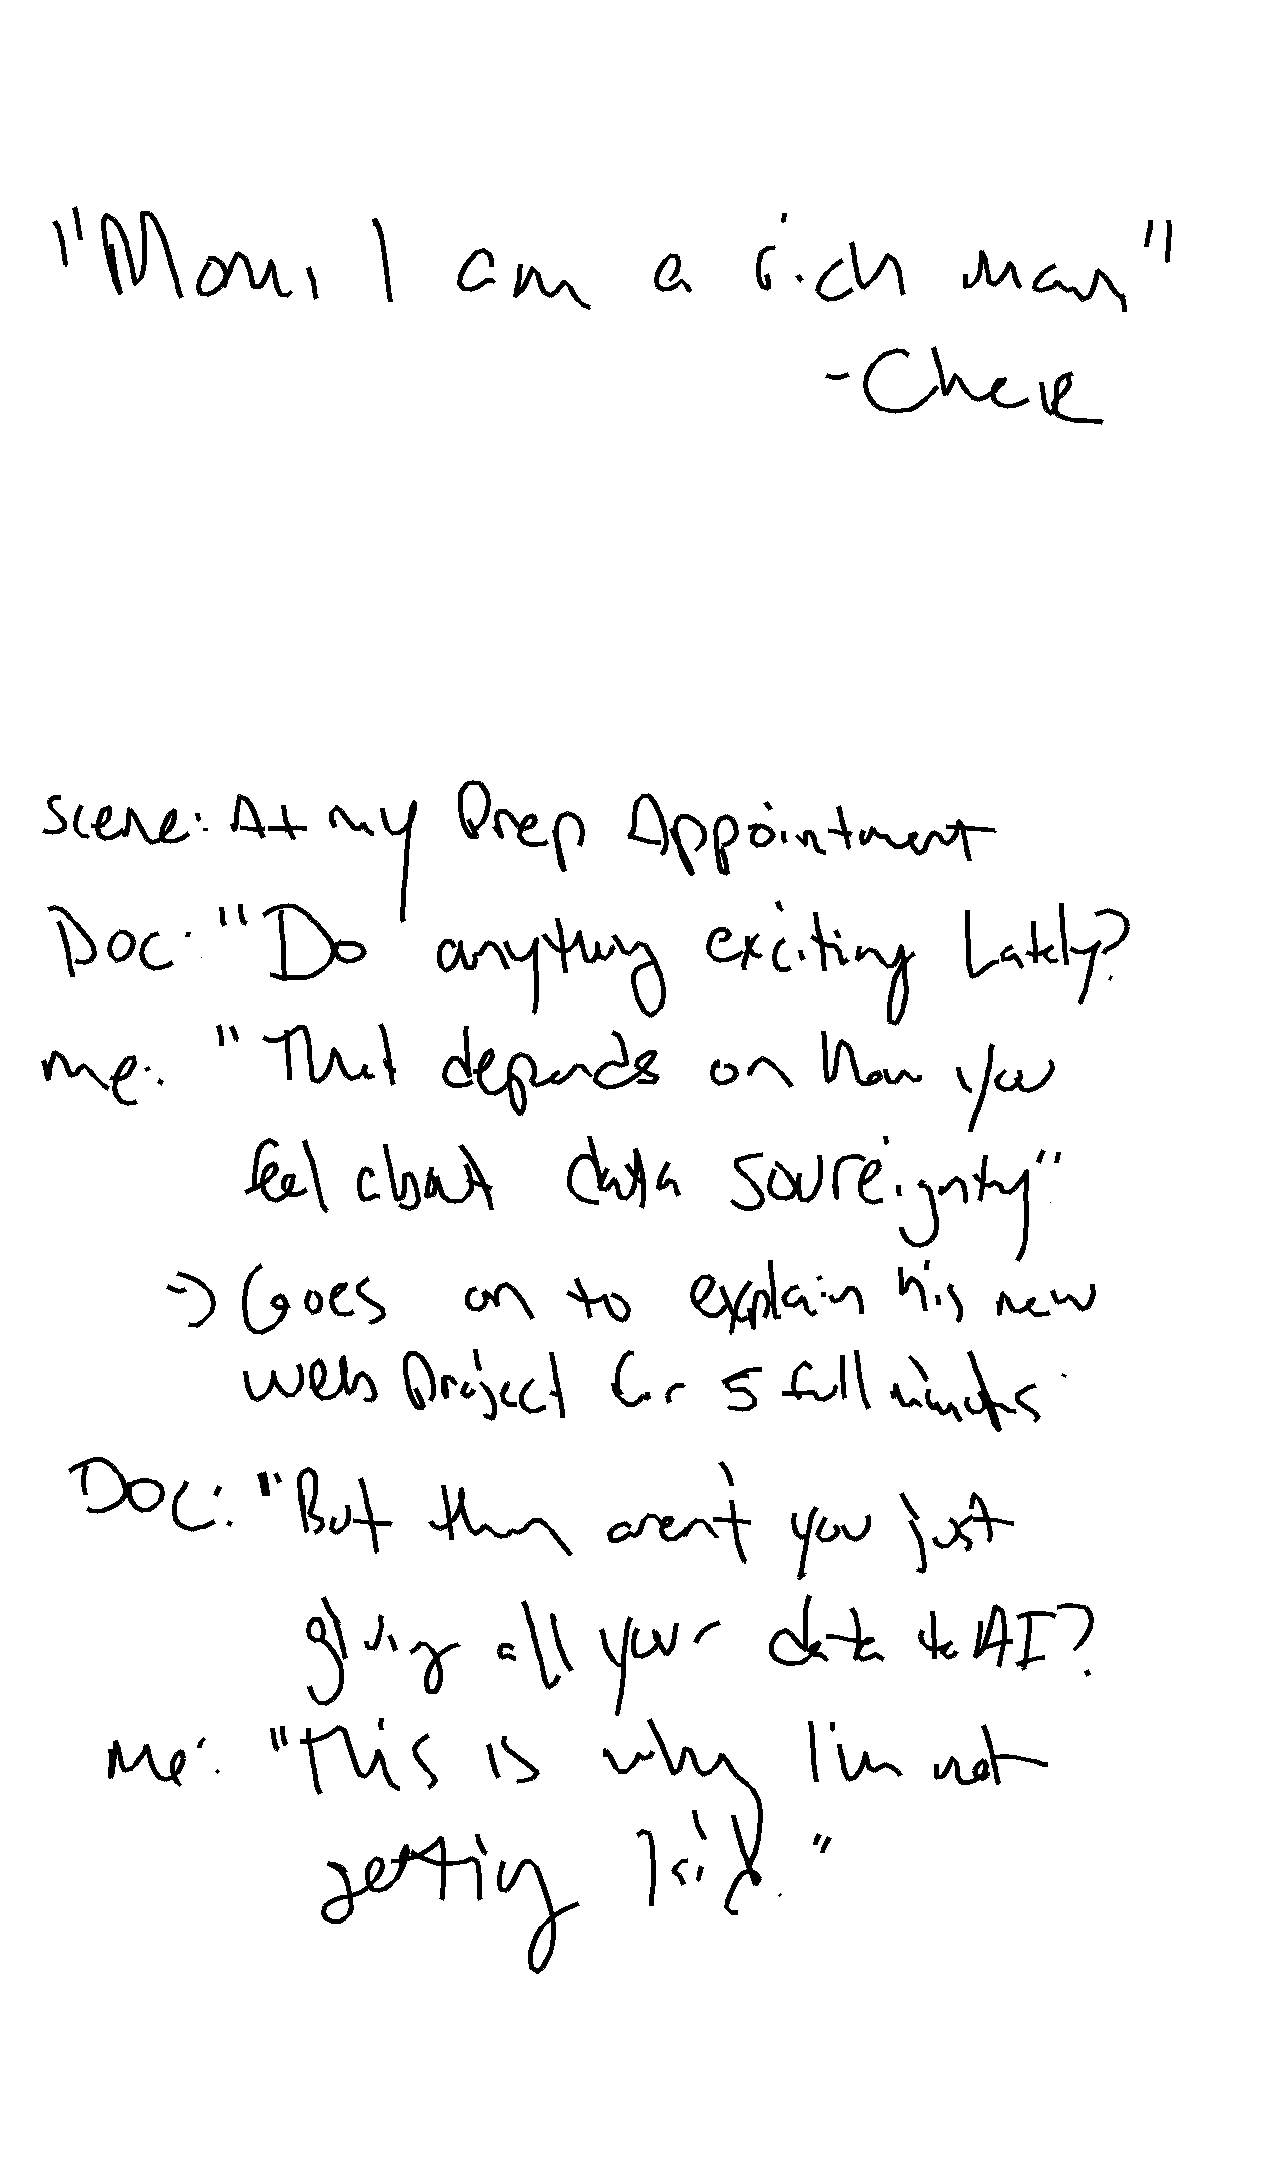 "Mom, I am a rich man"
-Cher
Scene: At my Prep Appointment
Doc: "Do anything exciting Lately?
me: "That depends on how you
feel about data sovreignty"
→ Goes on to explain his new
web project for 5 full minutes
Doc: "But then aren't you just
giving all your data to AI?
Me: "This is why I'm not
getting laid."